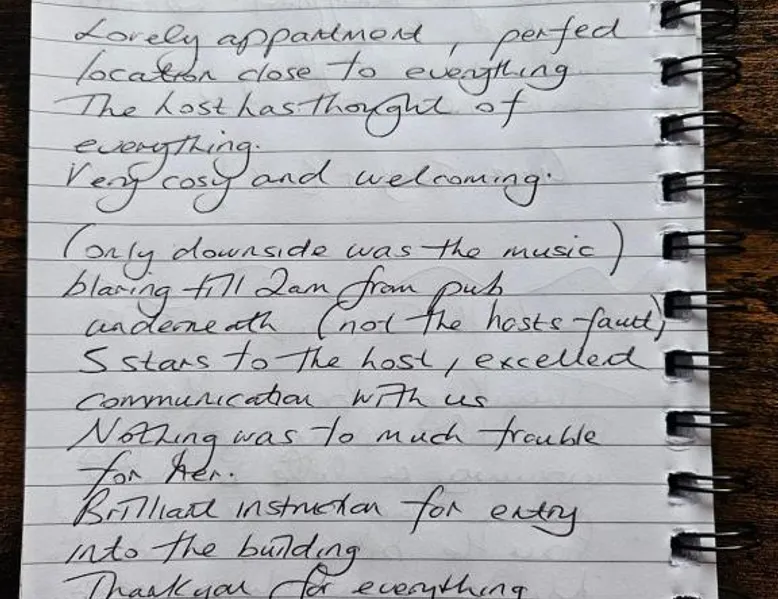 Lovely appartment, perfect
location close to everything
The host has thought of
everything.
Very cosy and welcoming.
(only downside was the music)
blaring till 2am from pub
underneath (not the hosts fault)
5 stars to the host, excelled
communication with us
Nothing was to much trouble
for her.
Brilliant instruction for entry
into the building
Thank you for everything